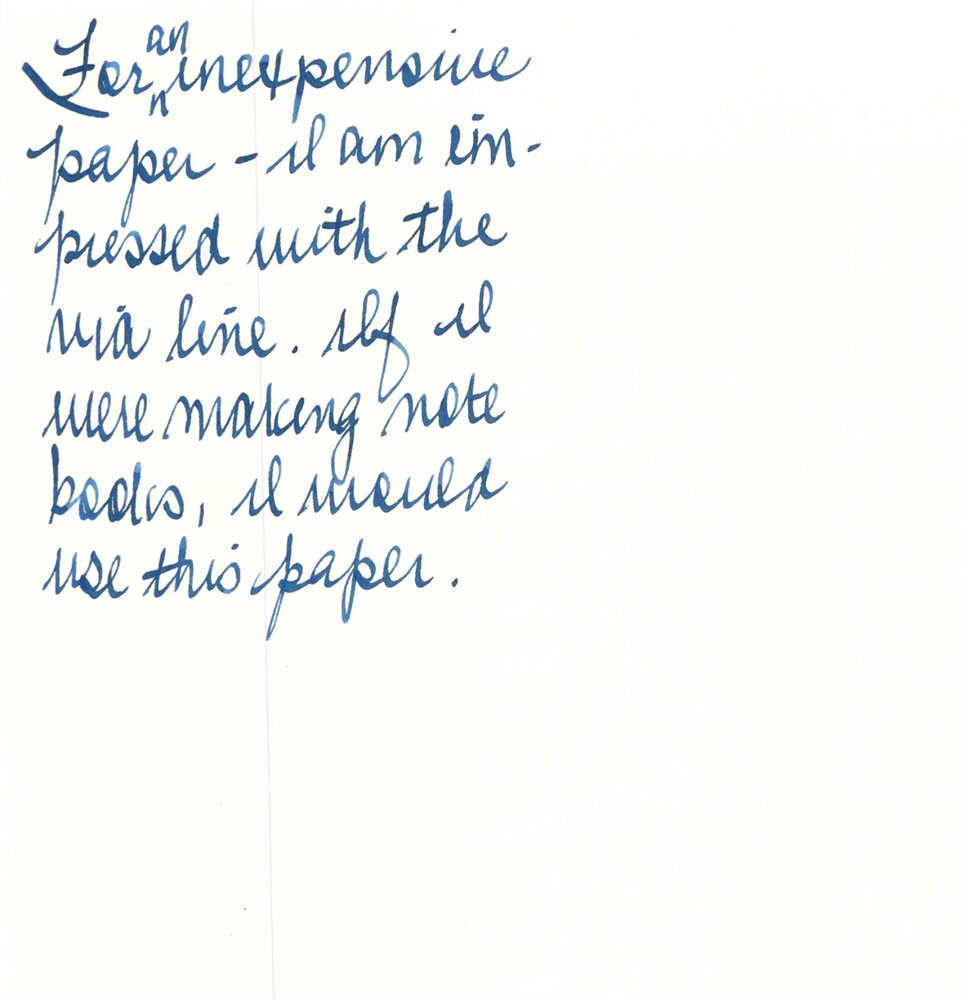 For an inexpensive
paper - I am im-
pressed with the
via line. If I
were making note
books, I would
use this paper.